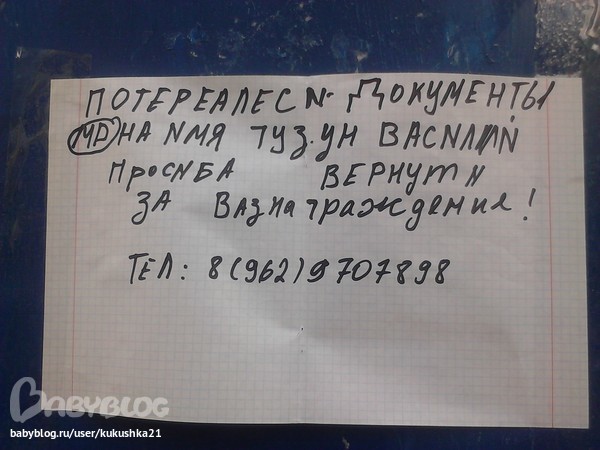 ПОТЕРЕАЛЕСИ ДОКУМЕНТЫ
МД НА ИМЯ ГУЗУН ВАСИЛИЙ
ПРОСИБА ВЕРНУТИ
ЗА ВАЗНАГРАЖДЕНИЯ!
ТЕЛ: 8(962)9707898
BABYBLOG
babyblog.ru/user/kukushka21